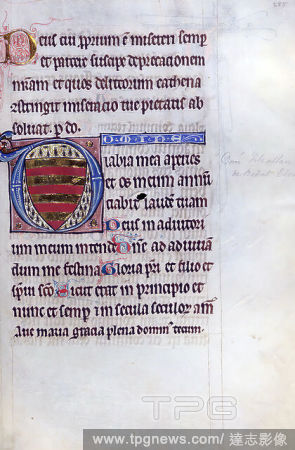 Deus cui p̄prium ē misereri semp̄
et parcere suscipe deprecationem
nr̄am et quos delictorum cathena
rstringit miseracio tue pietatis ab
soluat. p. dn̄.
DOMINE
labia mea aperies
et os meum annū
ciabit laudē tuam
Deus in adiutori
um meum intende Dn̄e ad adiuuā
dum me festina Gloria pr̄i et filio et
sp̄ui sco Sicut erat in principio et
nunc et semp̄ in secula seculor̄ am̄
Aue maria gracia plena domin' tecum.
TPG
www.tpgnews.com / 達志影像